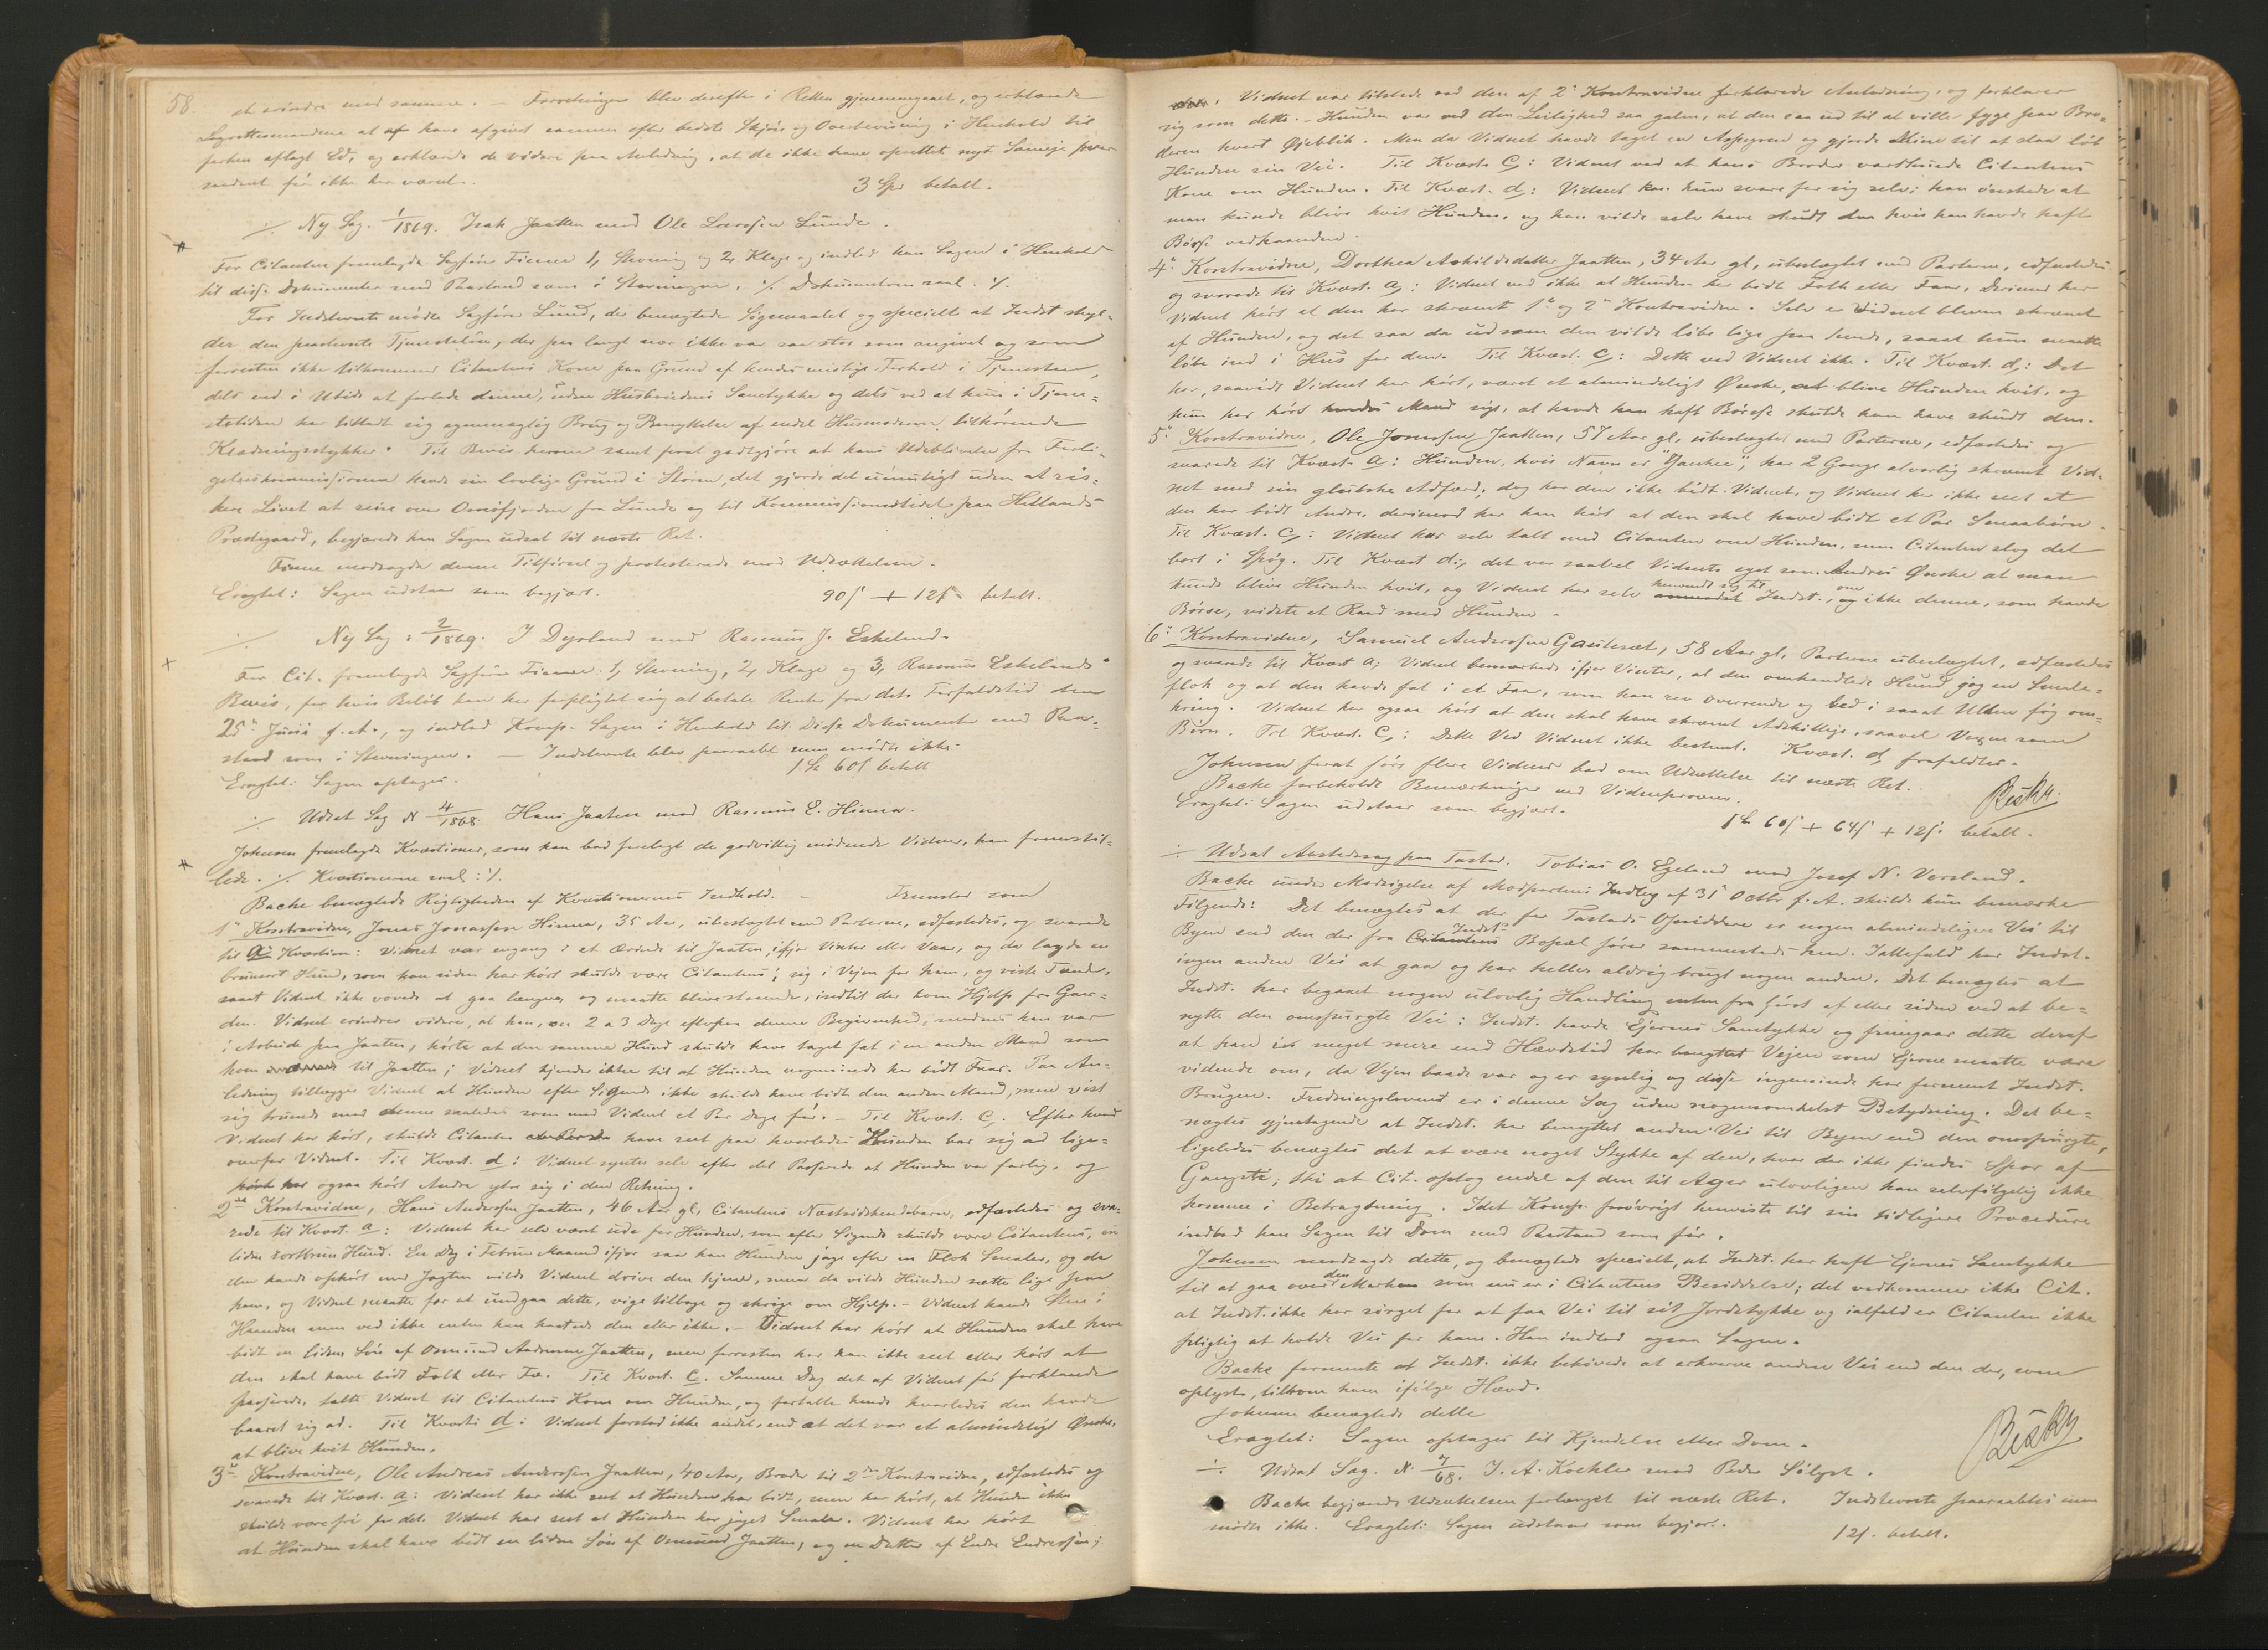 58.
at erindre mod samme. – Forretningen blev derefter i Retten gjennemgaaet, og erklærede
Lagrettesmændene at have afgivet samme efter bedste Skjøn og Overbevisning i Henhold til
forhen aflagt Ed, og erklærede de videre paa Anledning, at de ikke have oprettet nyt Sameje hvor
saadant før ikke har været.
3 Spd betalt.
Ny Sag. 1/1869. Isak Jaatten mod Ole Larssen Lunde.
For Citanten fremlagde Sagfører Finne 1, Stevning og 2, Klage og indlod han Sagen i Henhold
til disse Dokumenter med Paastand som i Stevningen. ./. Dokumenterne vml. ./.
For Indstevnte mødte Sagfører Lund, der benægtede Søgsmaalet og specielt at Indst skyl-
der den paastevnte Tjenesteløn, der paa langt nær ikke var saa stor som angivet og som
forresten ikke tilkommer Citantens Kone paa Grund af hendes mislige Forhold i Tjenesten,
dels ved i Utide at forlade denne, uden Husbondens Samtykke og dels ved at hun i Tjene-
stetiden har tilladt sig egenmægtig Brug og Benyttelse af endel Husmoderen tilhørende
Klædningsstykker. Til Bevis herom samt forat godtgjøre at hans Udeblivelse fra Forli-
gelseskommissionen havde sin lovlige Grund i Storm, det gjorde det umuligt uden at ris-
kere Livet at reise over fra Lunde og til Kommissionsstedet paa Hetlands
Prædegaard, begjærede han Sagen udsat til næste Ret.
Finne modsagde denne Tilførsel og protesterede mod Udsættelsen.
Eragtet: Sagen udstaar som begjært.
90 s + 12 s betalt.
Ny Sag: 2/1869. I Dysland mod Rasmus J. Eskeland.
For Cit. fremlagde Sagfører Finne: 1, Stevning, 2, Klage og 3, Rasmus Eskelands
Bevis, for hvis Beløb han har forpligtet sig at betale Renter fra dets Forfaldstid den
25de Juni f. A., og indlod Komp. Sagen i Henhold til Disse Dokumenter med Paa-
stand som i Stevningen. – Indstevnte blev paaraabt men mødte ikke.
Eragtet: Sagen optages.
1 60 s betalt
Udsat Sag N 4/1868. Hans Jaatten mod Rasmus E. Hinna.
Johnsen fremlagde Kvæstioner, som han bad forelagt de godvillig mødende Vidner, han fremstil-
lede. ./. Kvæstionerne vml: ./.
Backe benægtede Rigtigheden af Kvæstionernes Indhold. – Fremstod som
1ste Kontravidne, Jonas Jonassen Hinna, 35 Aar, ubeslægtet med Parterne, edfæstedes, og svarede
til a Kvæstion: Vidnet var engang i et Ærinde til Jaatten, ifjor Vinter eller Vaar, og da lagde en
brunsort Hund, som han siden har hørt skulde være Citantens, sig i Vejen for ham, og viste Tænder,
saa at Vidnet ikke vovede at gaa længere og maatte blive staaende, indtil der kom Hjelp fra Gaar-
den. Vidnet erindrer videre, at han, en 2 a 3 Dage efterpaa denne Begivenhed, medens han var
i Arbeide paa Jaatten, hørte at den samme Hund skulde have taget fat i en anden Mand som
kom til Jaatten; Vidnet kjender ikke til at Hunden nogensinde har bidt Faar. Paa An-
ledning tillægger Vidnet at Hunden efter Sigende ikke skulde have bidt den anden Mand, men vist
sig truende mod denne saaledes som mod Vidnet et Par Dage før. – Til Kvæst. C. Efter hvad
Vidnet har hørt, skulde Citanten have seet paa hvorledes Hunden bar sig ad lige-
overfor Vidnet. Til Kvæst. d: Vidnet syntes selv efter det Passerede at Hunden var farlig, og
har ogsaa hørt Andre ytre sig i den Retning.
2det Kontravidne, Hans Andersen Jaatten, 46 Aar gl, Citantens Næstsødskendebarn, edfæstedes og sva-
rede til Kvæst. a: Vidnet har selv været ude for Hunden, som efter Sigende skulde være Citantens, en
liden sortbrun Hund. En Dag i Februar Maaned ifjor saa han Hunden jage efter en Flok Smaler, og da
den havde ophørt med Jagten vilde Vidnet drive den hjem, men da vilde Hunden sætte lige paa
ham, og Vidnet maatte for at undgaa dette, vige tilbage og skrige om Hjelp. – Vidnet havde Sten i
Haanden men ved ikke enten han kastede den eller ikke. – Vidnet har hørt at Hunden skal have
bidt en liden Søn af Osmund Jaatten, men forresten har han ikke seet eller hørt at
den skal have bidt Folk eller Fæ. Til Kvæst. C. Samme Dag det af Vidnet før forklarede
passerede, talte Vidnet til Citantens Kone om Hunden, og fortalte hende hvorledes den havde
baaret sig ad. Til Kvæst: d: Vidnet forstod ikke andet, end at det var et almindeligt Ønske,
at blive kvit Hunden.
3de Kontravidne, Ole Andreas Andersen Jaatten, 40 Aar, Broder til 2det Kontravidne, edfæstedes og
svarede til Kvæst. a: Vidnet har ikke seet at Hunden har bidt, men har hørt, at Hunden ikke
skulde være fri for det. Vidnet har seet at Hunden har jaget Smaler. Vidnet har hørt
at Hunden skal have bidt en liden Søn af Osmund Jaatten, og en Datter af Endre Endressen;
Vidnet var tilstede ved den af 2det Kontravidne forklarede Anledning, og forklarer
sig som dette. – Hunden var ved den Leilighed saa galen, at den saa ud til at ville fyge paa Bro-
deren hvert Øjeblik. Men da Vidnet havde taget en og gjorde Mine til at slaa løb
Hunden sin Vei. Til Kvæst. C: Vidnet ved at hans Broder varskuede Citantens
Kone om Hunden. Til Kvæst. d: Vidnet kan kun svare for sig selv; han ønskede at
man kunde blive kvit Hunden, og han vilde selv have skudt den hvis han havde haft
Børse vedhaanden.
4de Kontravidne, Dorthea Askildsdatter Jaatten, 34 Aar gl, ubeslægtet med Parterne, edfæstedes
og svarede til Kvæst. a: Vidnet ved ikke at Hunden har bidt Folk eller Faar, Derimod har
Vidnet hørt at den har skræmt 1ste og 2det Kontravidne. Selv er Vidnet bleven skræmt
af Hunden, og det saa da ud som den vilde løbe lige paa hende, saa at hun maatte
løbe ind i Hus for den. Til Kvæst. C: Dette ved Vidnet ikke. Til Kvæst. d: Det
har, saavidt Vidnet har hørt, været et almindeligt Ønske, at blive Hunden kvit, og
hun har hørt hendes Mand sige, at havde han haft Børse skulde han have skudt den.
5te Kontravidne, Ole Jonassen Jaatten, 57 Aar gl, ubeslægtet med Parterne, edfæstedes og
svarede til Kvæst. a: Hunden, hvis Navn er "Yankee", har 2 Gange alvorlig skræmt Vid-
net med sin glubske Adfærd; dog har den ikke bidt Vidnet, og Vidnet har ikke seet at
den har bidt Andre, derimod har han hørt at den skal have bidt et Par Smaabørn.
Til Kvæst. C: Vidnet har selv talt med Citanten om Hunden, men Citanten slog det
bort i Spøg. Til Kvæst d: det var saavel Vidnets eget som Andres Ønske at man
kunde blive Hunden kvit, og Vidnet har selv henvendt sig til Indst., om ikke denne, som havde
Børse, vidste et Raad med Hunden.
6te Kontravidne, Samuel Anderssen Gautesæt, 58 Aar gl, Parterne ubeslægtet, edfæstedes
og svarede til Kvæst a; Vidnet bemærkede ifjor Vinter, at den omhandlede Hund jog en Smale-
flok og at den havde fat i et Faar, som han rev overende og bed i saa at Ulden føg om-
kring. Vidnet har ogsaa hørt at den skal have skræmt Adskillige, saavel Voxne som
Børn. Til Kvæst. C: Dette Ved Vidnet ikke bestemt. Kvæst. d, frafaldtes.
Johnsen forat føre flere Vidner bad om Udsættelse til næste Ret.
Backe forbeholdt Bemærkninger ved Vidneprovene.
Eragtet: Sagen udstaar som begjært.
1 60 s + 64 s + 12 s betalt.
Udsat Aastedssag paa Tasted. Tobias O. Egeland mod Josef N. Versland.
Backe under Modsigelse af Modpartens Indlæg af 31te Octbr f. A. skulde kun bemærke
Følgende: Det benægtes at der for Tasteds Opsiddere er nogen almindeligere Vei til
Byen end den der fra Indsts Bopæl fører sammesteds hen. Iallefald har Indst.
ingen anden Vei at gaa og har heller aldrig brugt nogen anden. Det benægtes at
Indst. har begaaet nogen ulovlig Handling enten fra først af eller siden ved at be-
nytte den omspurgte Vei: Indst. havde Ejernes Samtykke og fremgaar dette deraf
at han i meget mere end Hævdstid har benyttet Vejen som Ejerne maatte være
vidende om, da Vejen baade var og er synlig og disse ingensinde har formeent Indst.
Brugen. Fredningsloven er i denne Sag uden nogensomhelst Betydning. Det be-
nægtes gjentagende at Indst. har benyttet anden Vei til Byen end den omspurgte,
ligeledes benægtes det at være noget Stykke af den, hvor der ikke findes Spor af
Gangsti; thi at Cit. optog endel af den til Ager ulovligen kan selvfølgelig ikke
komme i Betragtning. Idet Komp. forøvrigt henviste til sin tidligere Procedure
indlod han Sagen til Dom med Paastand som før.
Johnsen modsagde dette, og benægtede specielt, at Indst. har haft Ejernes Samtykke
til at gaa over den Mark som nu er i Citantens Besiddelse; det vedkommer ikke Cit.
at Indst. ikke har sørget for at faa Vei til sit Jordstykke og ialfald er Citanten ikke
pligtig at holde Vei for ham. Han indlod ogsaa Sagen.
Backe formente at Indst. ikke behøvede at erhverve anden Vei end den der, som
oplyst, tilkom ham ifølge Hævd.
Johnsen benægtede dette
Eragtet: Sagen optages til Kjendelse eller Dom.
Udsat Sag. N. 7/68. J. A. Koehler mod Peder Sølyst.
Backe begjærede Udsættelsen forlænget til næste Ret. Indstevnte paaraabtes men
mødte ikke. Eragtet: Sagen udstaar som begjært.
12 s. betalt.